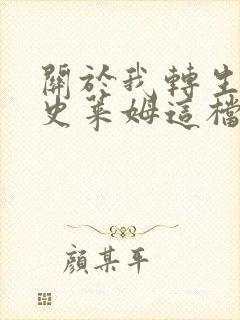 關於我轉生
史萊姆這檔
顏某平